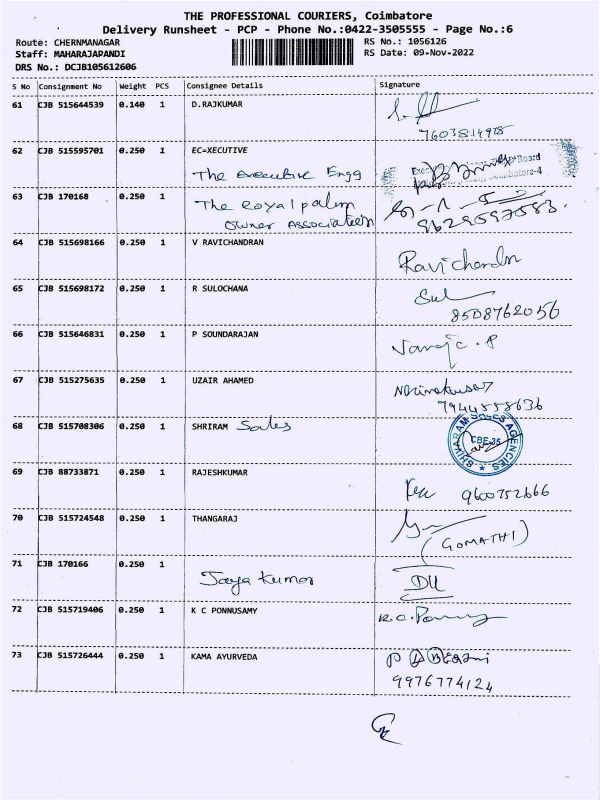 THE PROFESSIONAL COURIERS, Coimbatore
Delivery Runsheet - PCP - Phone No.:0422-3505555 - Page No.:6
Route: CHERNMANAGAR RS No.: 1056126
Staff: MAHARAJAPANDI RS Date: 09-Nov-2022
DRS No.: DCJB105612606
S No Consignment No Weight PCS Consignee Details Signature
61 CJB 515644539 0.140 1 D.RAJKUMAR
7603814978
62 CJB 515595701 0.250 1 EC=XECUTIVE
The Executive Engg Board
Coimbatore-4
63 CJB 170168 0.250 1 The Royal palm
Owner Association 9629597583
64 CJB 515698166 0.250 1 V RAVICHANDRAN
Ravichandn
65 CJB 515698172 0.250 1 R SULOCHANA Sul
8508762056
66 CJB 515646831 0.250 1 P SOUNDARAJAN
67 CJB 515275635 0.250 1 UZAIR AHAMED
7944558636
68 CJB 515708306 0.250 1 SHRIRAM Sales SHIVARAM SALES AGENCIES
CBE-35
69 CJB 88733871 0.250 1 RAJESHKUMAR
9600752666
70 CJB 515724548 0.250 1 THANGARAJ
(GOMATHI)
71 CJB 170166 0.250 1
Jaya kumar
72 CJB 515719406 0.250 1 K C PONNUSAMY
K.C. Ponny
73 CJB 515726444 0.250 1 KAMA AYURVEDA
9976774124